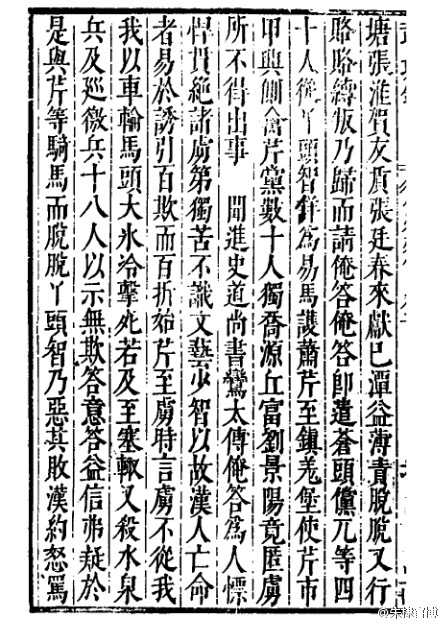 塘張淮賀友貭張廷春來獻已潭益薄責脫脫又行
賂賂縳叛乃歸而請俺答俺答卽遣蒼頭儻兀等四
十人從丫頭智鋅為易馬護蕭芹至鎮羌堡使芹巿
甲與鬭禽芹黨數十人獨喬源丘富劉景陽竟匿虜
所不得出事　聞進史道尚書鸞太傅俺答為人慓
悍貫絶諸虜第獨苦不識文藝少智以故漢人亡命
者易於誘引百欺而百折始芹至虜時言虜不從我
我以車輪馬頭大氷冷擊死若及至塞輙又殺水泉
兵及廵徼兵十八人以示無欺答意答益信弗疑於
是與芹等騎馬而脫脫丫頭智乃惡其敗漢約怒罵